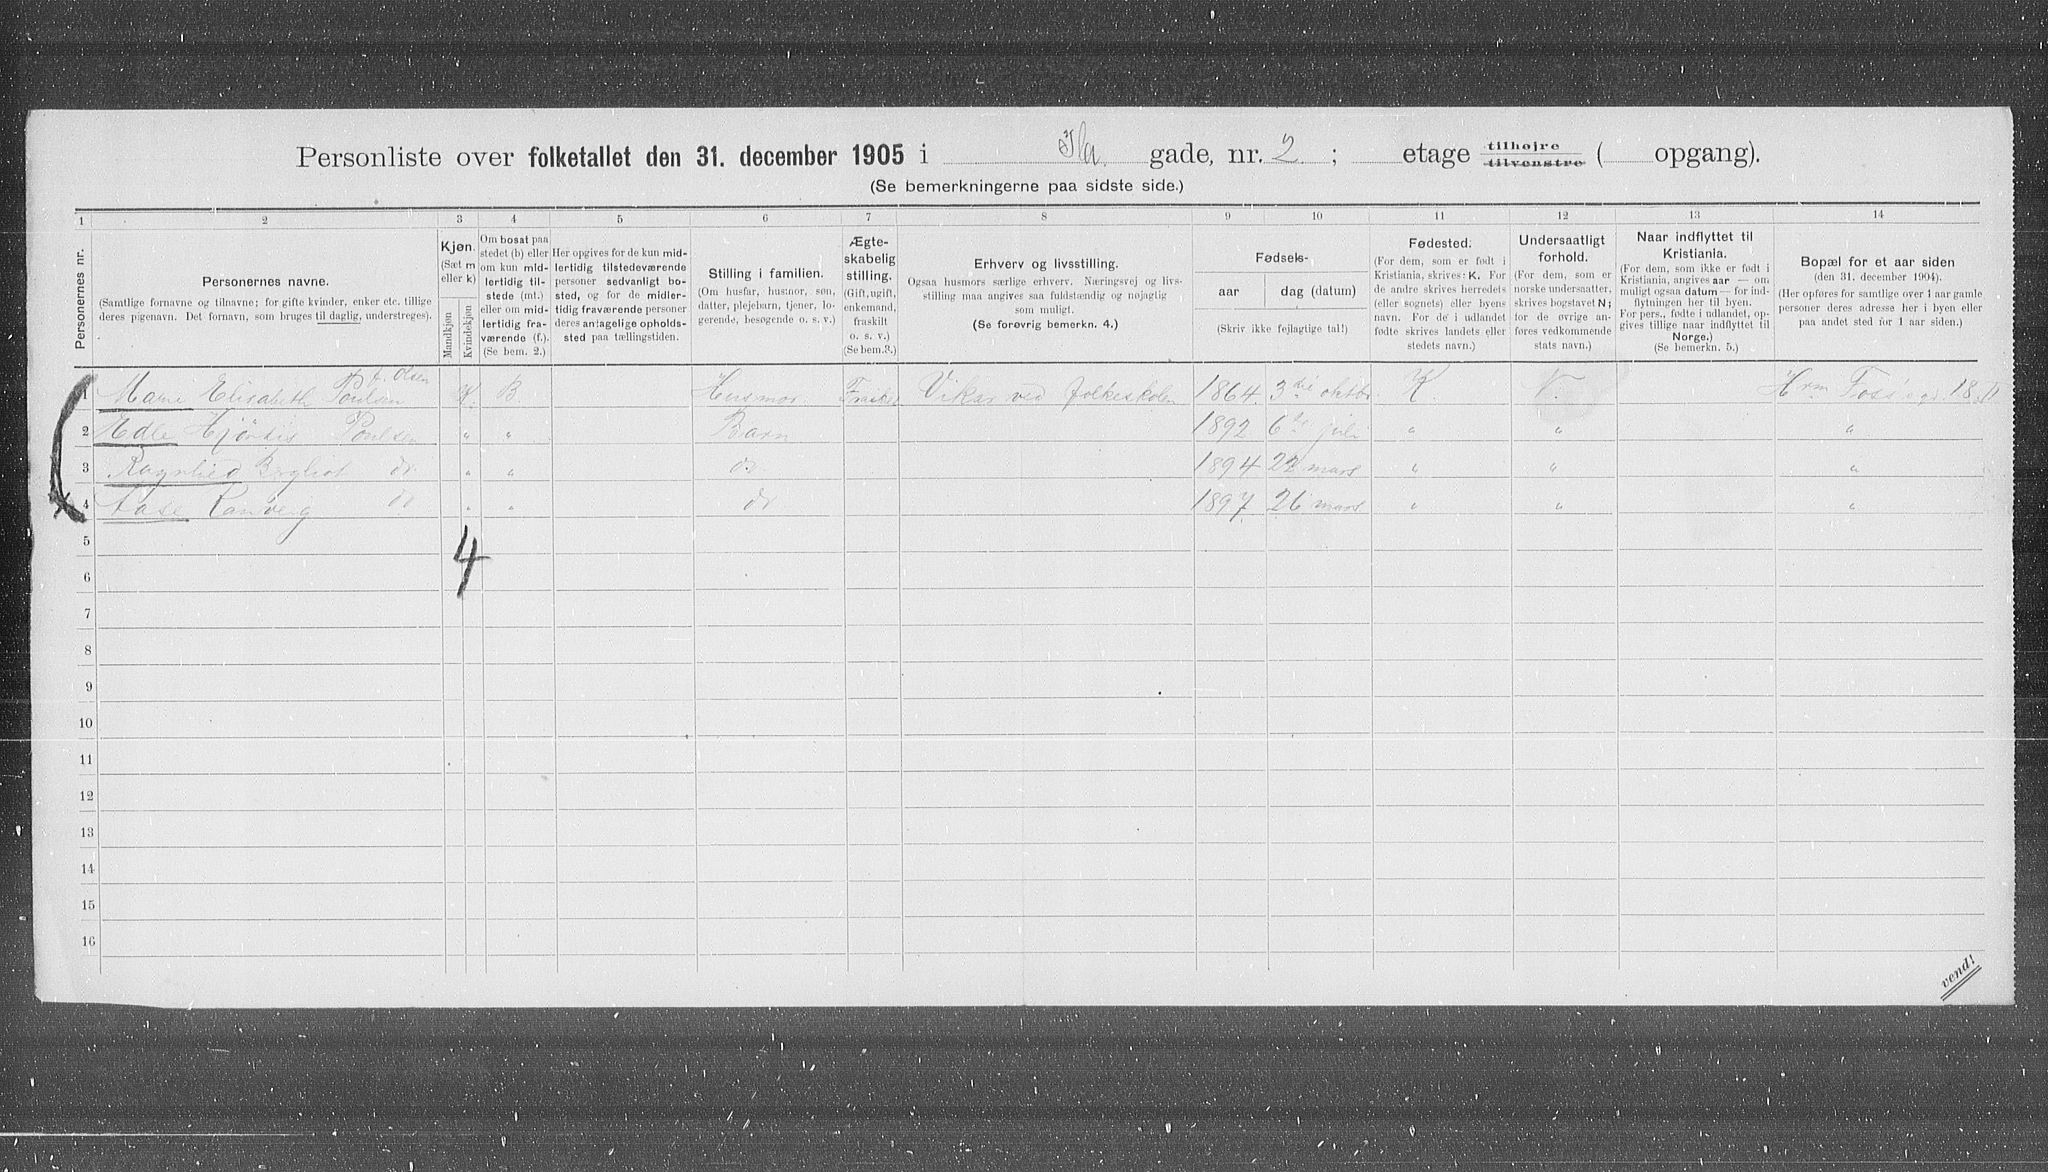 Personliste over folketallet den 31. december 1905 i Ila gade, nr. 2 ; etage tilhøjre tilvenstre ( opgang).
(Se bemerkningerne paa sidste side.)
1 2 3 4 5 6 7 8 9 10 11 12 13 14
Personernes nr.
Personernes navne.
(Samtlige fornavne og tilnavne; for gifte kvinder, enker etc. tillige
deres pigenavn. Det fornavn, som bruges til daglig, understreges).
Kjøn.
(Sæt m
eller k)
Mandkjøn
Kvindekjøn
Om bosat paa
stedet (b) eller
om kun mid-
lertidig til-
stede (mt.)
eller om mid-
lertidig fra-
værende (f.).
(Se bem. 2.)
Her opgives for de kun mid-
lertidig tilstedeværende
personer sedvanligt bo-
sted, og for de midler-
tidig fraværende personer
deres antagelige opholds-
sted paa tællingstiden.
Stilling i familien.
(Om husfar, husmor, søn,
datter, plejebarn, tjener, lo-
gerende, besøgende o. s. v.)
Ægte-
skabelig
stilling.
(Gift, ugift,
enkemand,
fraskilt
o. s. v.)
(Se bem.3.)
Erhverv og livsstilling.
Ogsaa husmors særlige erhverv. Næringsvej og livs-
stilling maa angives saa fuldstændig og nøjagtig
som muligt.
(Se forøvrig bemerkn. 4.)
Fødsels-
aar
dag (datum)
(Skriv ikke fejlagtige tal!)
Fødested.
(For dem, som er født i
Kristiania, skrives: K. For
de andre skrives herredets
(eller sognets) eller byens
navn. For de i udlandet
fødte skrives landets eller
stedets navn.)
Undersaatligt
forhold.
(For dem, som er
norske undersaatter,
skrives bogstavet N;
for de øvrige an-
føres vedkommende
stats navn.)
Naar indflyttet til
Kristiania.
(For dem, som ikke er født i
Kristiania, angives aar — om
muligt ogsaa datum — for ind-
flytningen her til byen.
For pers., fødte i udlandet, op-
gives tillige naar indflyttet til
Norge.)
(Se bemerkn. 5.)
Bopæl for et aar siden
(den 31. december 1904).
(Her opføres for samtlige over 1 aar gamle
personer deres adresse her i byen eller
paa andet sted for 1 aar siden.)
1 Marie Elisabeth Poulsen f. Olsen K. B. Husmor Fraskilt Vikar ved folkeskolen 1864 3die oktbr. K N. Foss gd. 18
2 Edle Hjørdis Poulsen " " Barn 1892 6te juli " " "
3 Ragnhild Bergliot do " " do 1894 22 mars " " "
4 Aase Ranveig do " " do 1897 26 mars " " "
4
5
6
7
8
9
10
11
12
13
14
15
16
vend!